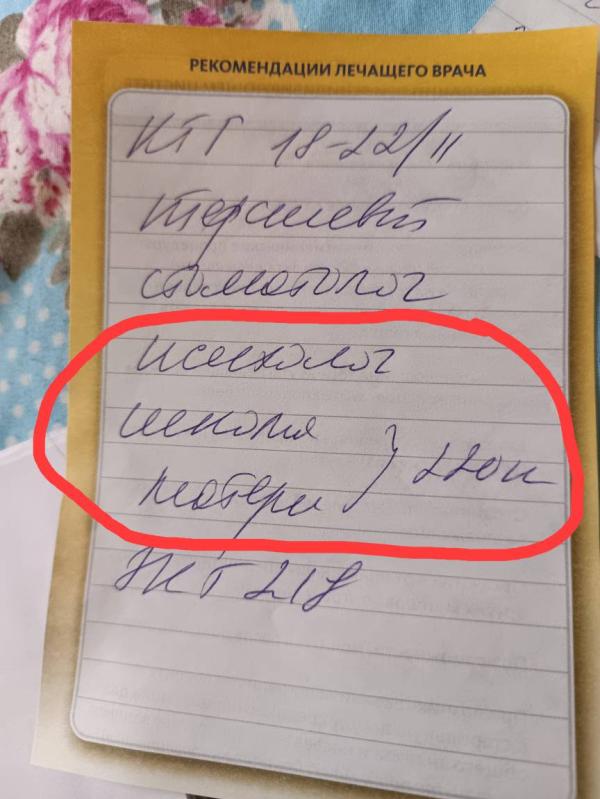 РЕКОМЕНДАЦИИ ЛЕЧАЩЕГО ВРАЧА
КТГ 18-22/II
терапевт
стоматолог
психолог
школа
матери } 220к
ЭКГ 218